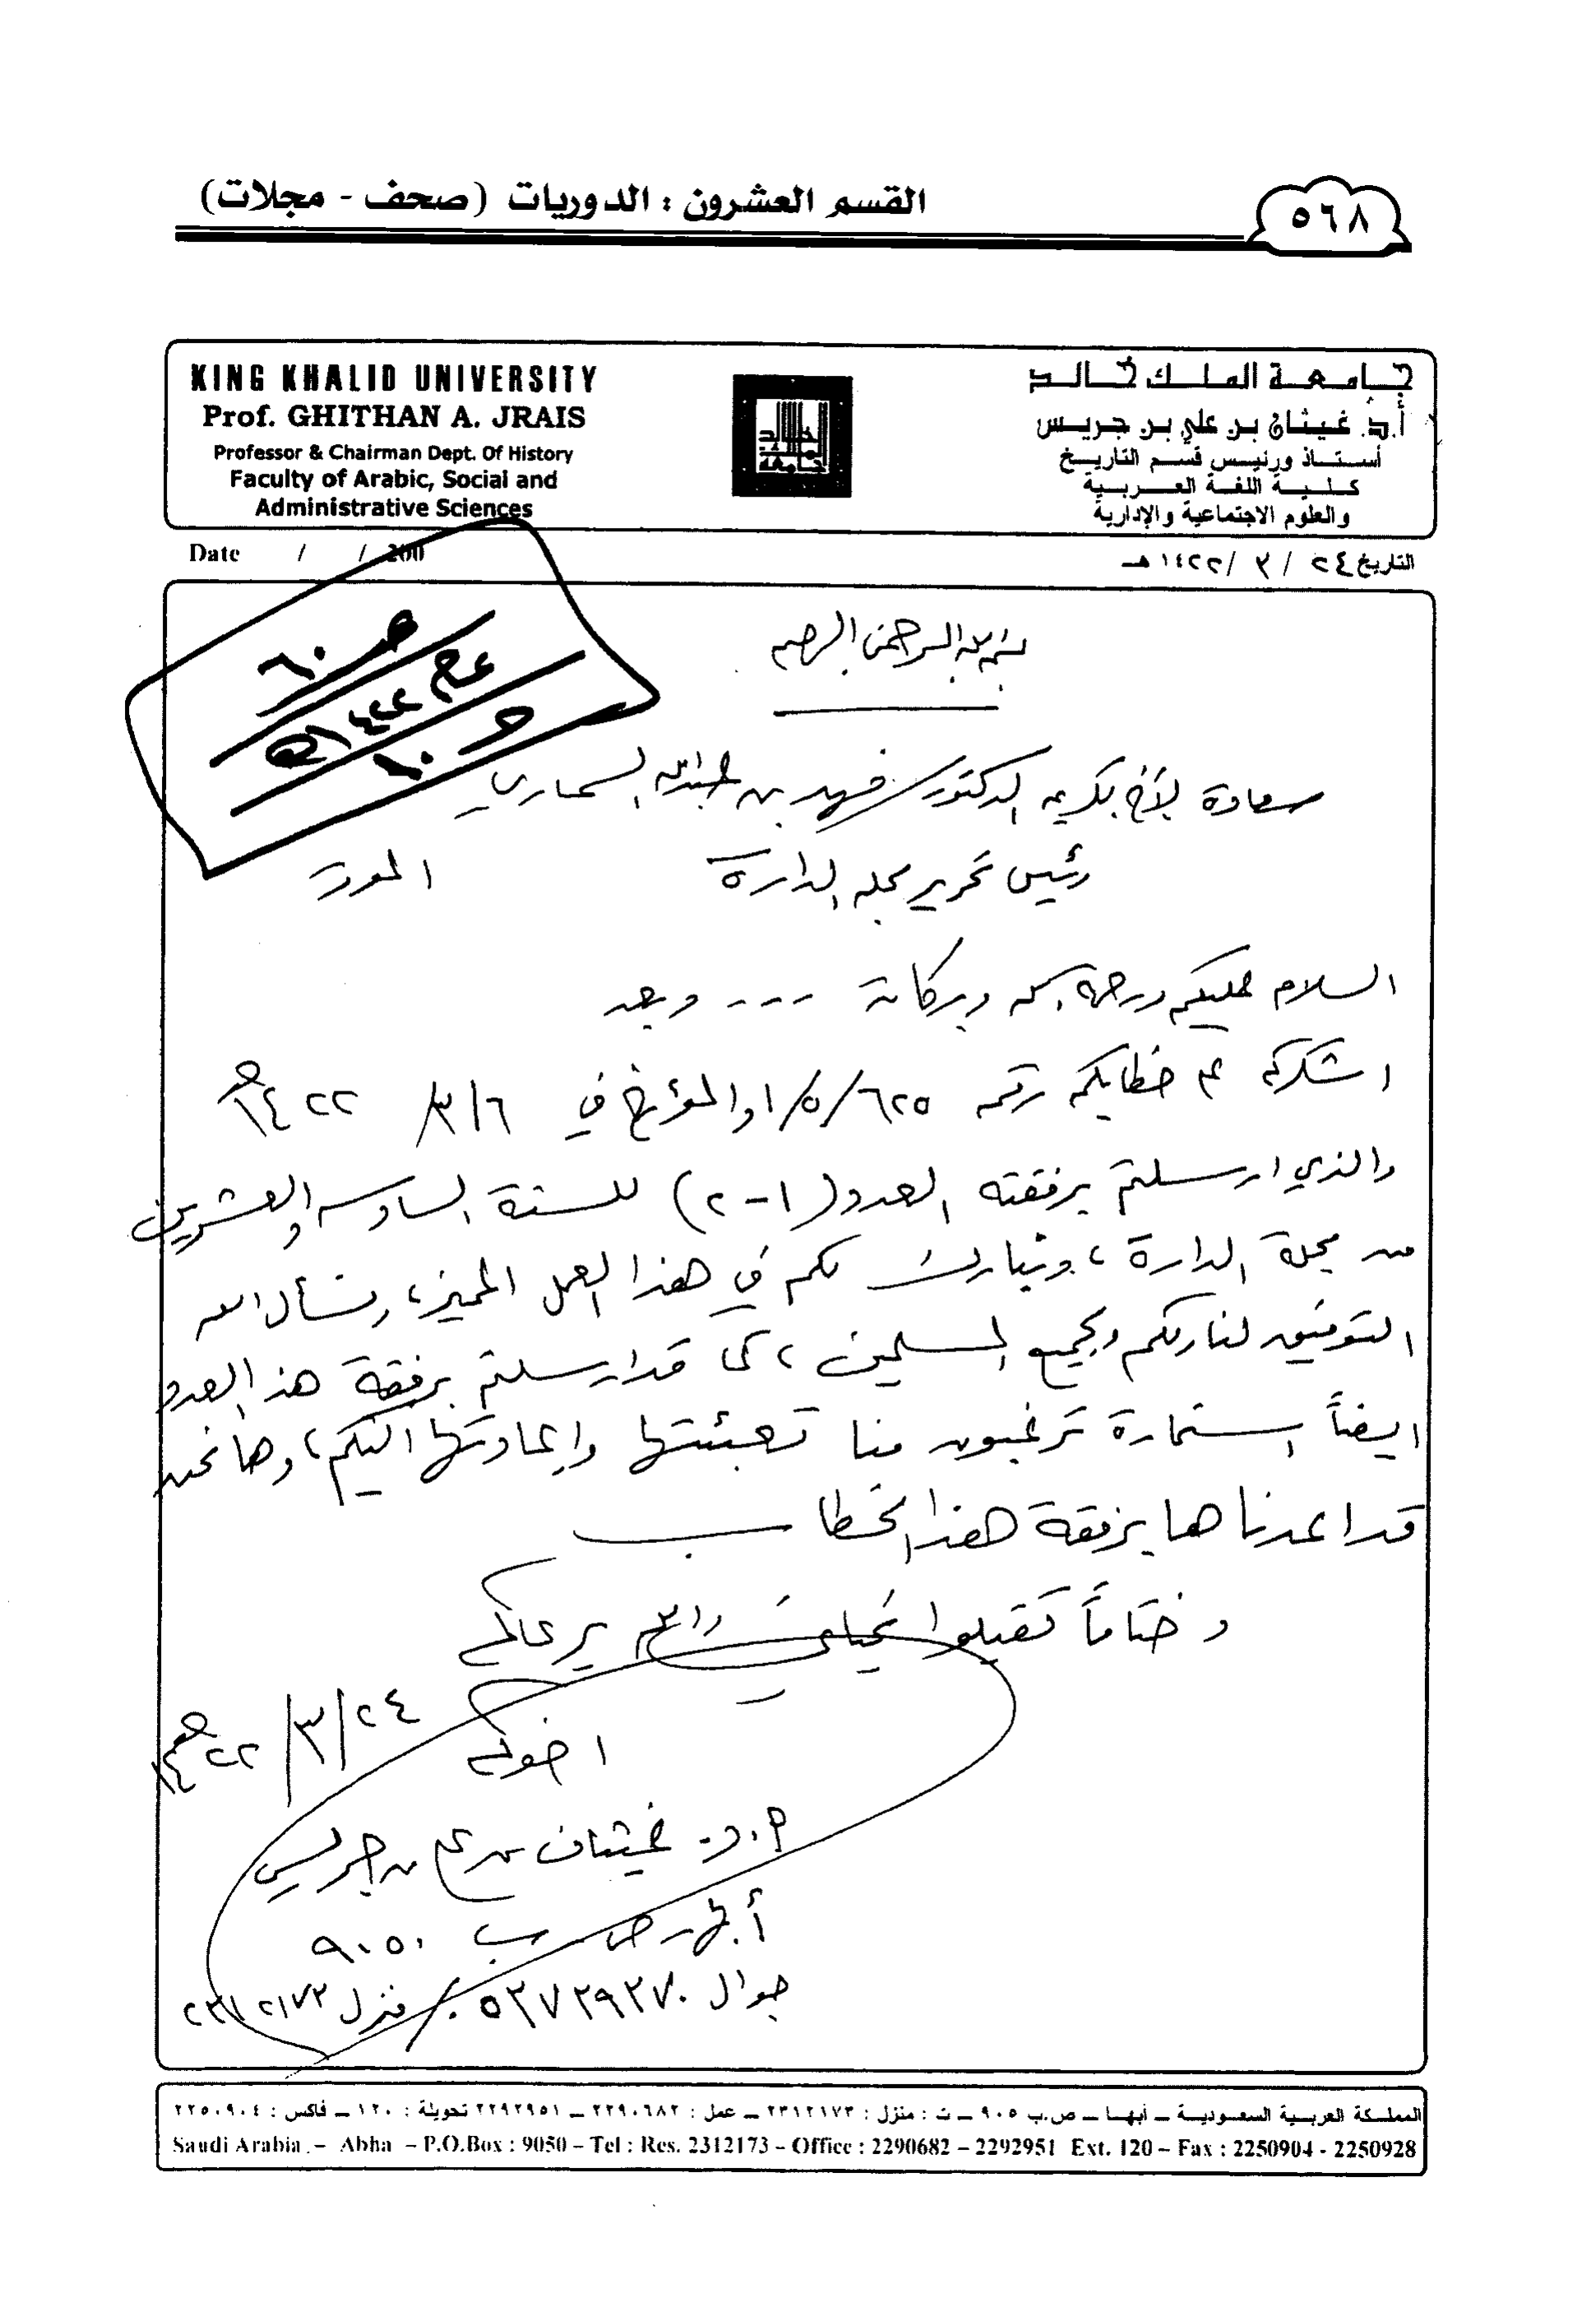 القسم العشرون : الدوريات (صحف - مجلات)
٥٦٨
KING KHALID UNIVERSITY
Prof. GHITHAN A. JRAIS
Professor & Chairman Dept. Of History
Faculty of Arabic, Social and
Administrative Sciences
جامعة الملك خالد
أ.د. غيثان بن علي بن جريس
أستاذ ورئيس قسم التاريخ
كلية اللغة العربية
والعلوم الاجتماعية والإدارية
Date / / 200
التاريخ ٢٤ / ٣ / ١٤٢٢ هـ
بسم الله الرحمن الرحيم
ص ٦٠
عام ١٤٢٢هـ
سعادة الأخ الكريم الدكتور فهد بن عبدالله السماري
رئيس تحرير مجلة الدارة الموقر
السلام عليكم ورحمة الله وبركاته --- وبعد
اشكركم على خطابكم رقم ١/٥/٦٢٥ والمؤرخ في ٣/٦/ ١٤٢٢هـ
والذي ارسلتم برفقته العدد (١-٢) للسنة السادسة والعشرين
من مجلة الدارة ، ونبارك لكم في هذا العمل المميز ، ونسأل الله
التوفيق لنا ولكم ولجميع المسلمين ، كما قد ارسلتم برفقة هذا العدد
ايضاً استمارة ترغبون منا تعبئتها وإعادتها اليكم ، وها نحن
قد اعدناها برفقة هذا الخطاب
وختاماً تقبلوا تحياتي والله يرعاكم
اخوكم ٢٤/٣/ ١٤٢٢هـ
أ.د. غيثان بن علي بن جريس
أبها - ص ب ٩٠٥٠
جوال ٠٥٣٧٢٩٣٧٠ / منزل ٢٣١٢١٧٣
المملكة العربية السعودية – أبهـا – ص.ب ٩٠٥ – ت : منزل : ٢٣١٢١٧٣ – عمل : ٢٢٩٠٦٨٢ – ٢٢٩٢٩٥١ تحويلة : ١٢٠ – فاكس : ٢٢٥٠٩٠٤
Saudi Arabia – Abha – P.O.Box : 9050 – Tel : Res. 2312173 – Office : 2290682 – 2292951 Ext. 120 – Fax : 2250904 - 2250928